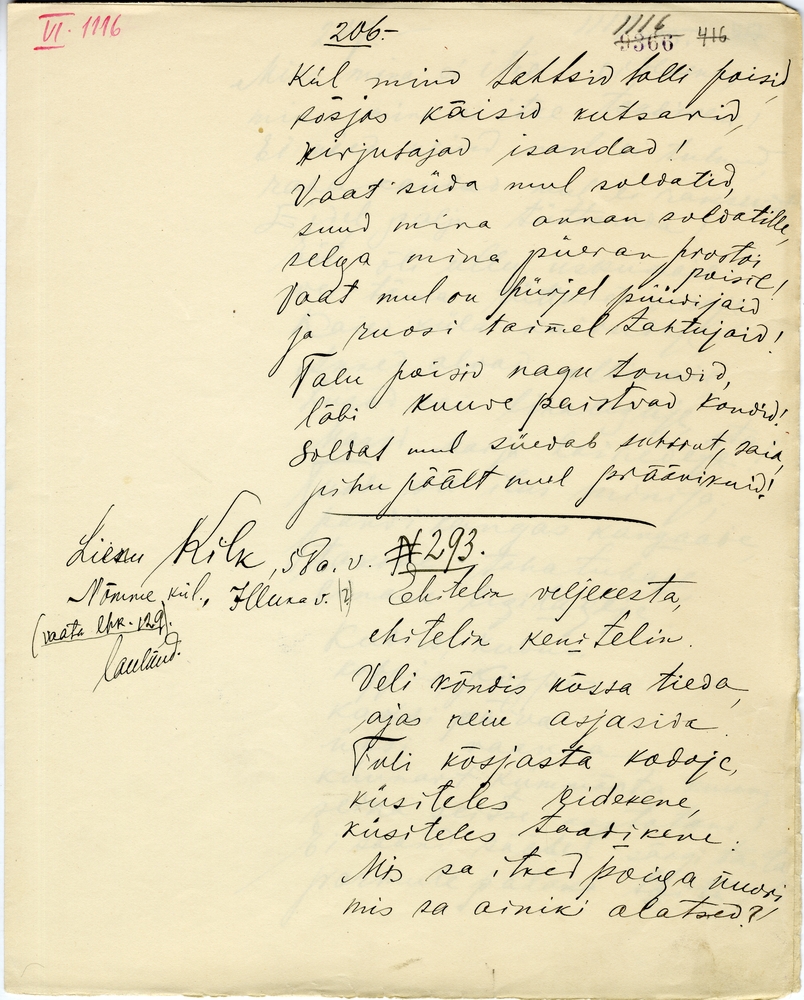 VI. 1116
206.-
1116
9366 416
Kül mind tahtsid talli poisid,
sõsjas käisid kutsarid,
kirjutajad isandad!
Vaat süda mul soldatid,
suud mina annan soldatille,
selga mina püeran prostoi
poisile!
Vaat mul on hürjel püüdijaid
ja ruosi taimel tahtujaid!
Talu poisid nagu tondid,
läbi kuuve paistvad kondid!
Soldat mul süedab suhkrut, saia,
pihu päält mul präänikuid!
Liesu Kilk, 5Pa. v. № 293.
Nõmme kül., Illuka v. (?)
(vaata lhk. 129).
laulund.
Ehitelin veljekesta,
ehitelin kenitelin.
Veli kõndis kõssa tieda,
ajas neiu asjasida
Tuli kõsjasta kodoje,
küsiteles eidekene,
küsiteles taadikene:
Mis sa itked poiga nuori,
mis sa ainiki alatsed?!